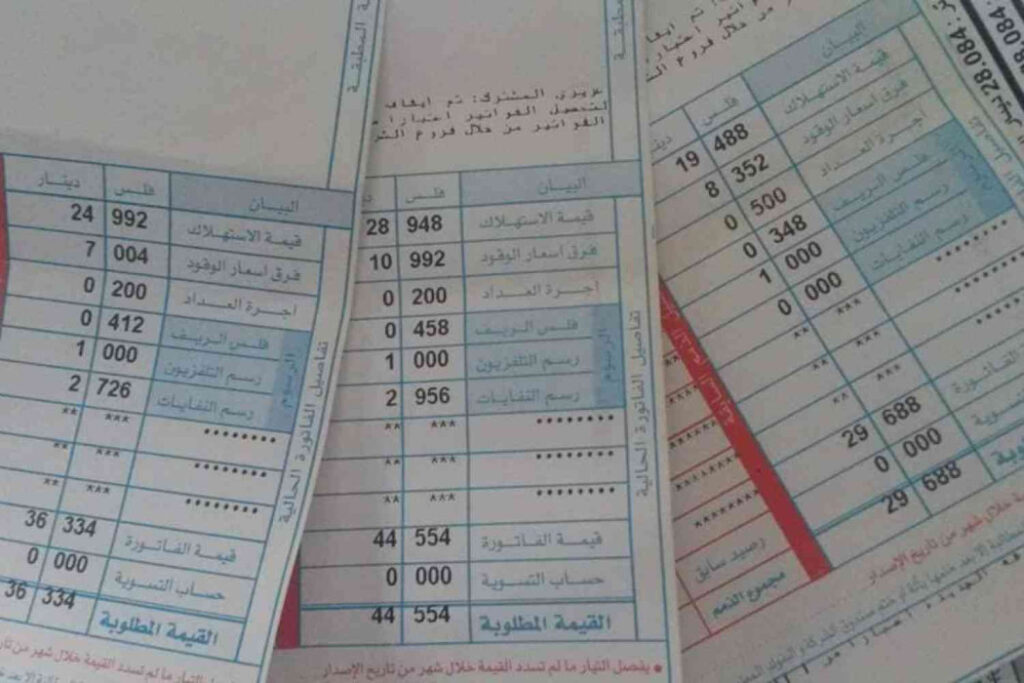 البيان فلس دينار
قيمة الاستهلاك 992 24
فرق أسعار الوقود 004 7
اجرة العداد 200 0
فلس الريف 412 0
رسم التلفزيون 000 1
رسم النفايات 726 2
******** *** **
******** *** **
******** *** **
قيمة الفاتورة 334 36
حساب التسوية 000 0
القيمة المطلوبة 334 36
الرسوم
تفاصيل الفاتورة الحالية
عزيزي المشترك: تم ايقاف
لتحصيل الفواتير اعتبارا
الفواتير من خلال فروع
البيان فلس
قيمة الاستهلاك 948 28
فرق أسعار الوقود 992 10
اجرة العداد 200 0
فلس الريف 458 0
رسم التلفزيون 000 1
رسم النفايات 956 2
******** *** **
******** *** **
******** *** **
قيمة الفاتورة 554 44
حساب التسوية 000 0
القيمة المطلوبة 554 44
الرسوم
تفاصيل الفاتورة الحالية
• يفصل التيار ما لم تسدد القيمة خلال شهر من تاريخ الإصدار
من خلال فروع
البيان فلس
قيمة الاستهلاك 488 19
فرق أسعار الوقود 352 8
اجرة العداد 500 0
فلس الريف 348 0
رسم التلفزيون 000 1
رسم النفايات 000 0
******** *** **
*** **
*** **
688 29
000 0
688 29
رصيد سابق
مجموع الذمم
خلال شهر من تاريخ الإصدار
28.084